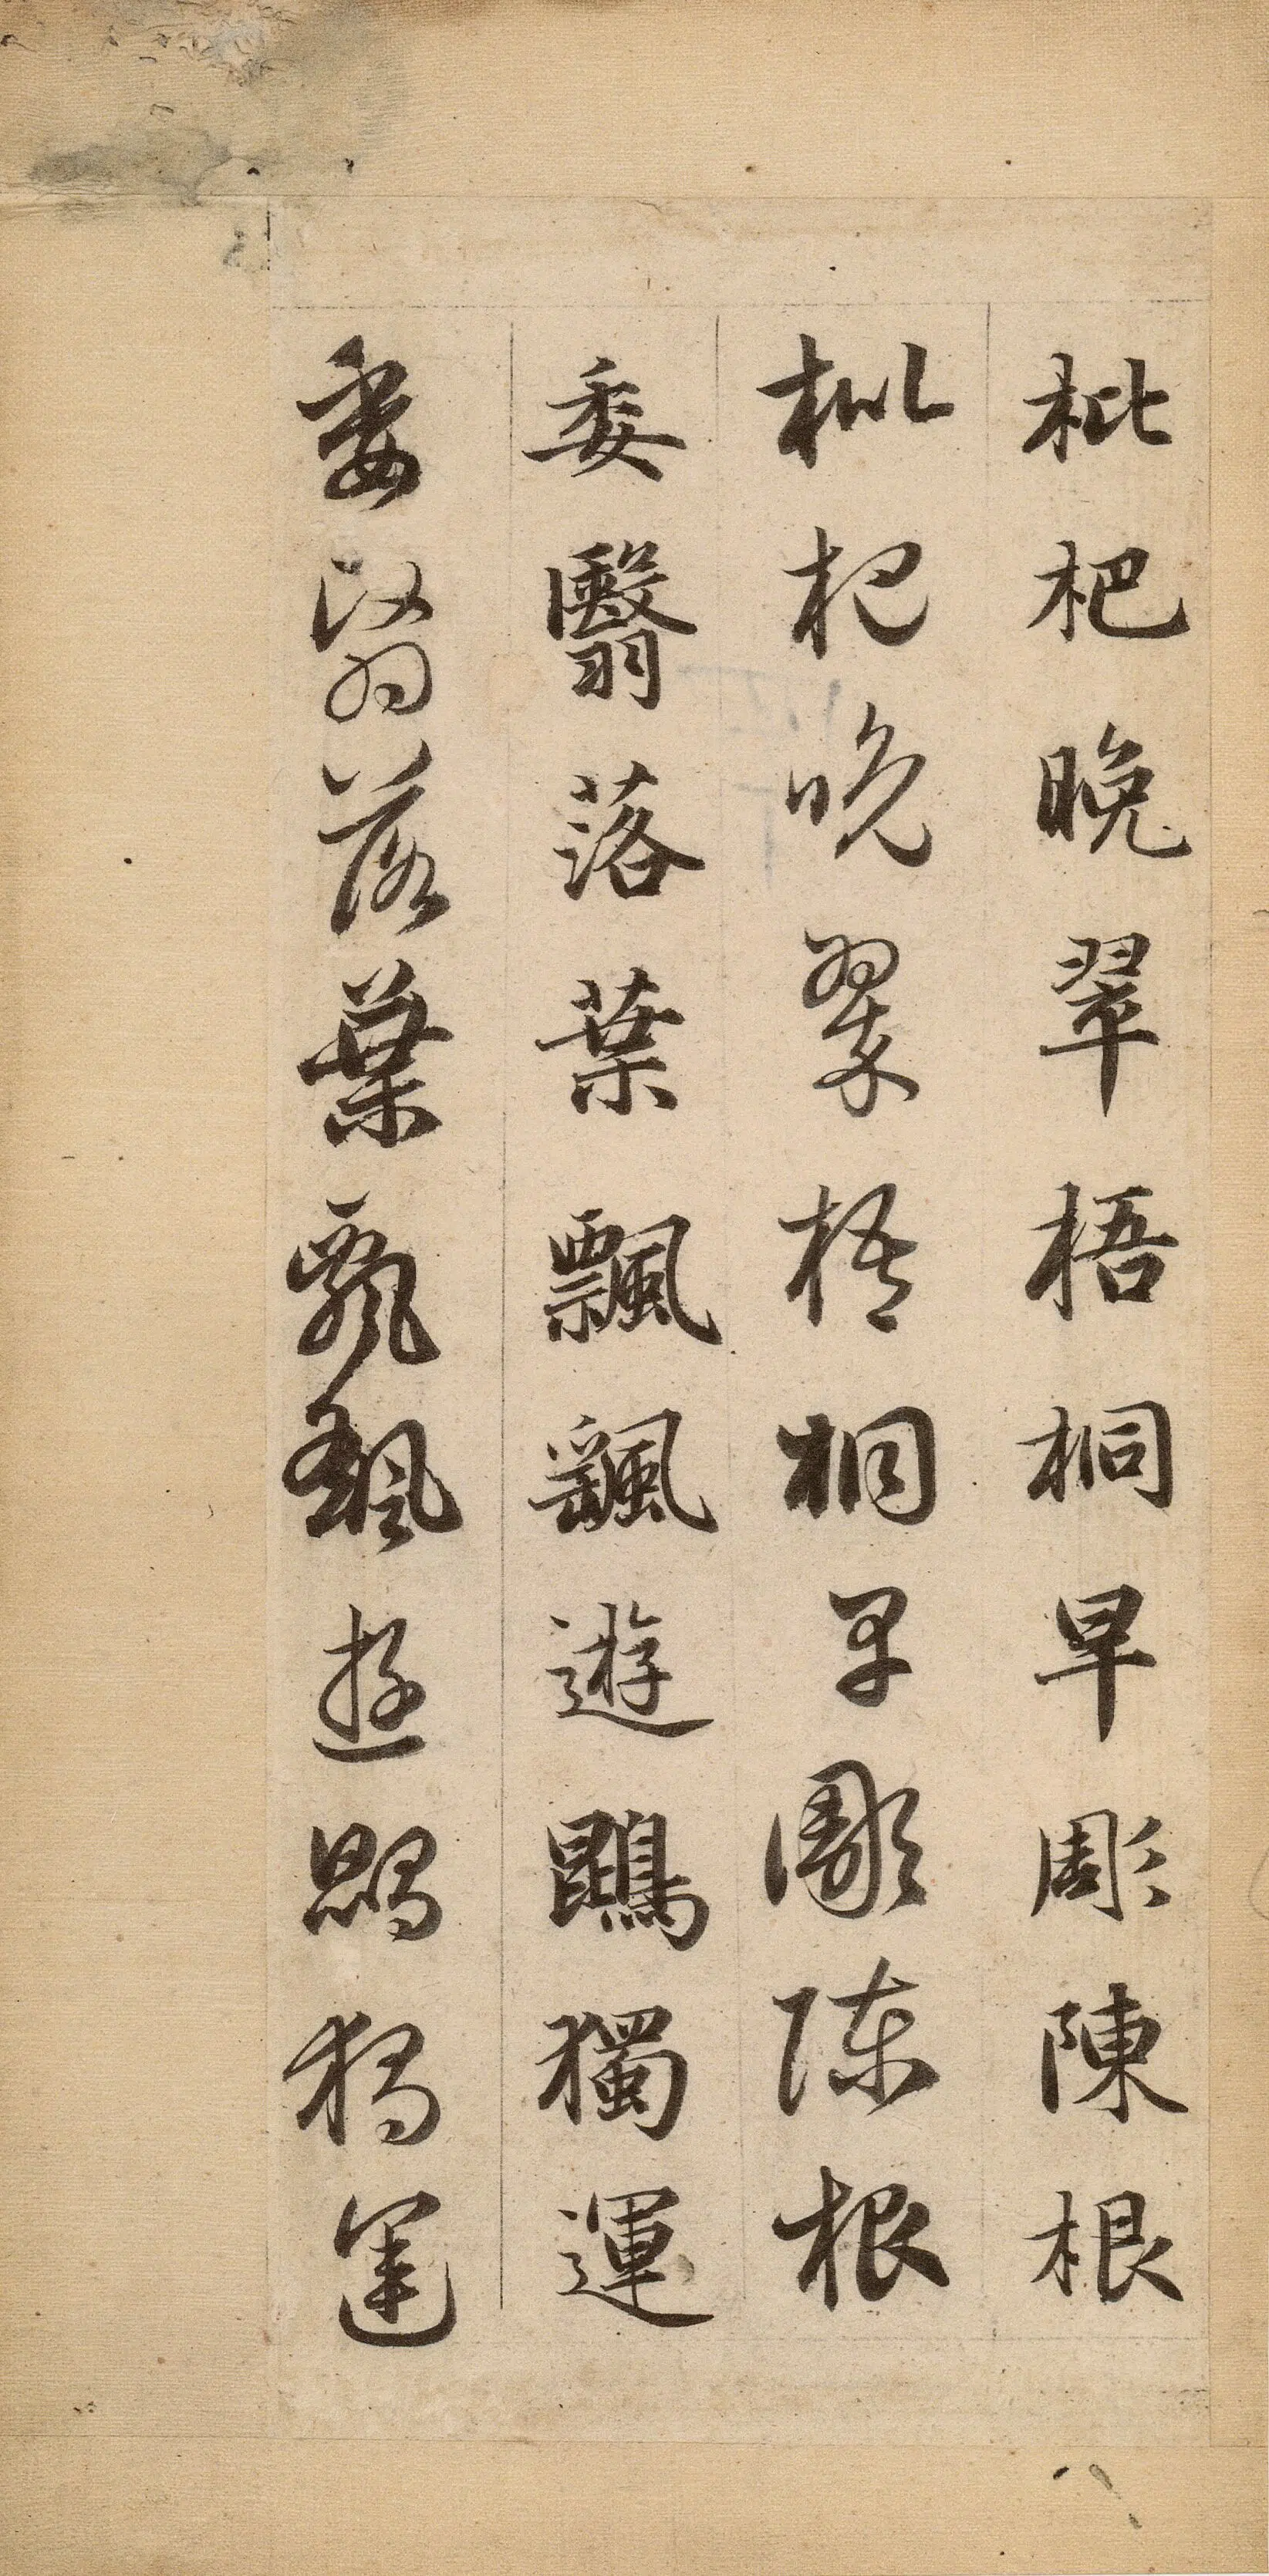 枇杷晚翠梧桐早彫陳根
枇杷晚翠梧桐早彫陳根
委翳落葉飄颻遊鵾獨運
委翳落葉飄颻遊鵾獨運